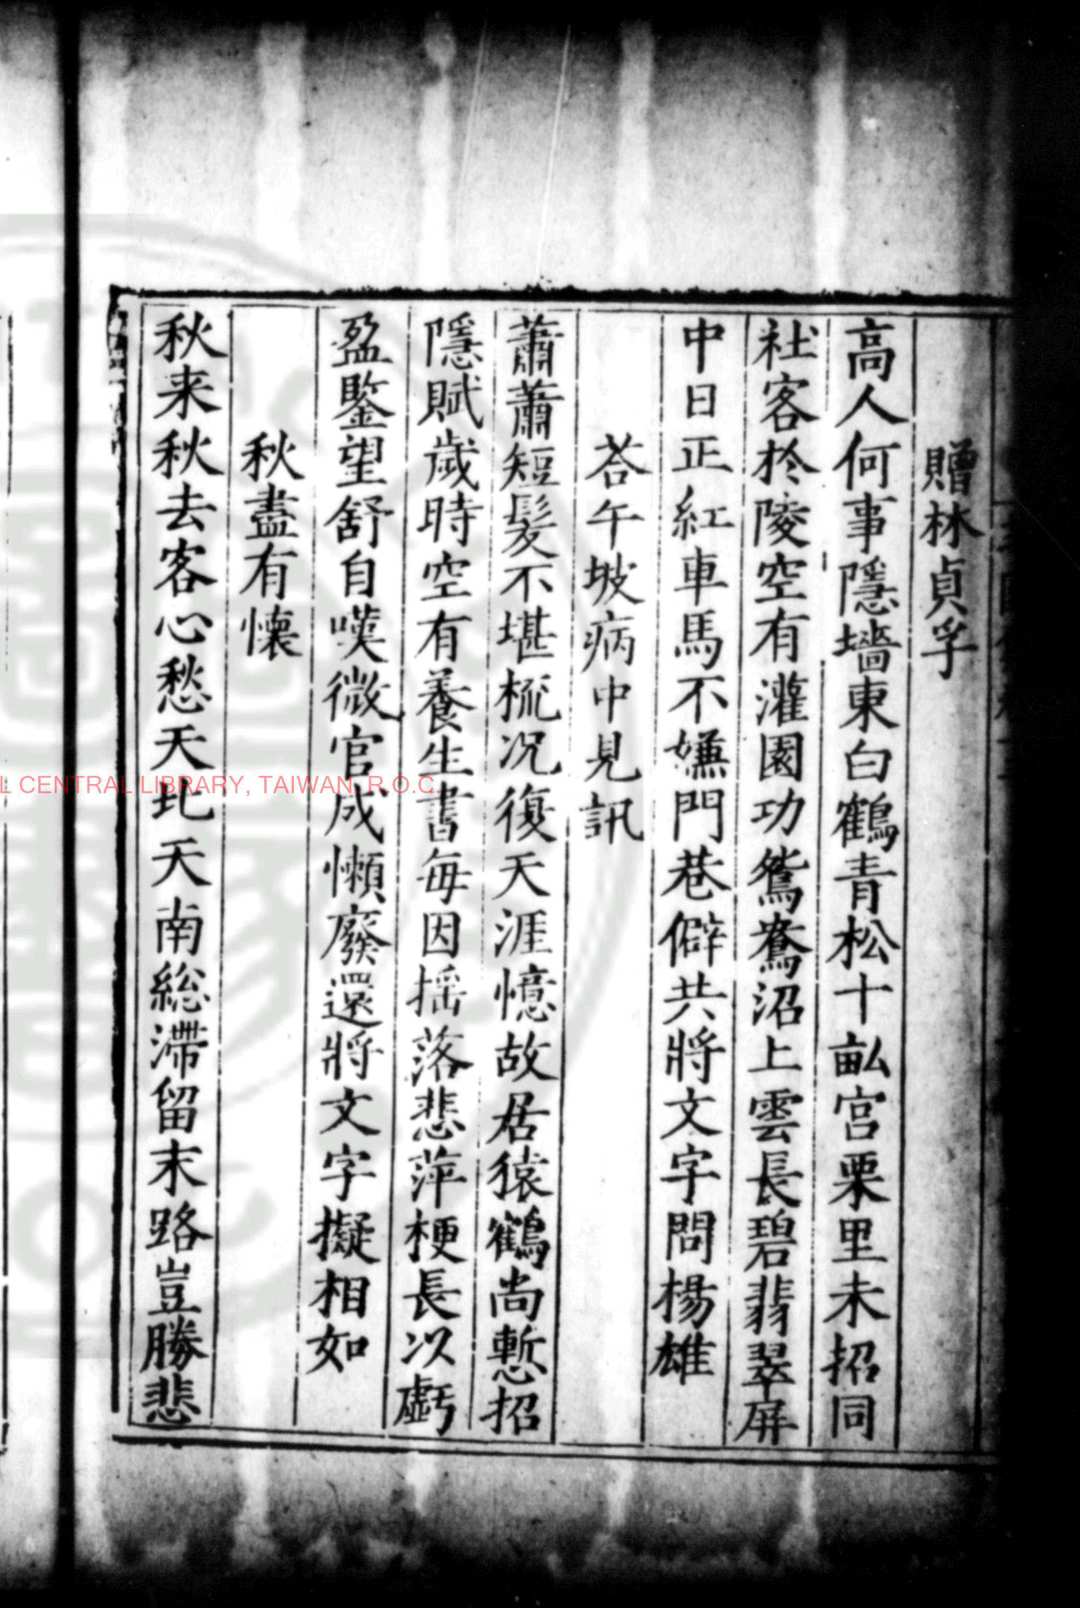 贈林貞孚
高人何事隱墻東白鶴青松十畝宮栗里未招同
社客於陵空有灌園功鴛鴦沼上雲長碧翡翠屏
中日正紅車馬不嫌門巷僻共將文字問楊雄
荅午坡病中見訊
蕭蕭短髮不堪梳况復天涯憶故居猿鶴尚慙招
隱賦歲時空有養生書每因揺落悲萍梗長以虧
盈鑒望舒自嘆微官成懶廢還將文字擬相如
秋盡有懷
秋来秋去客心愁天北天南総滯留末路豈勝悲
L CENTRAL LIBRARY, TAIWAN, R.O.C.